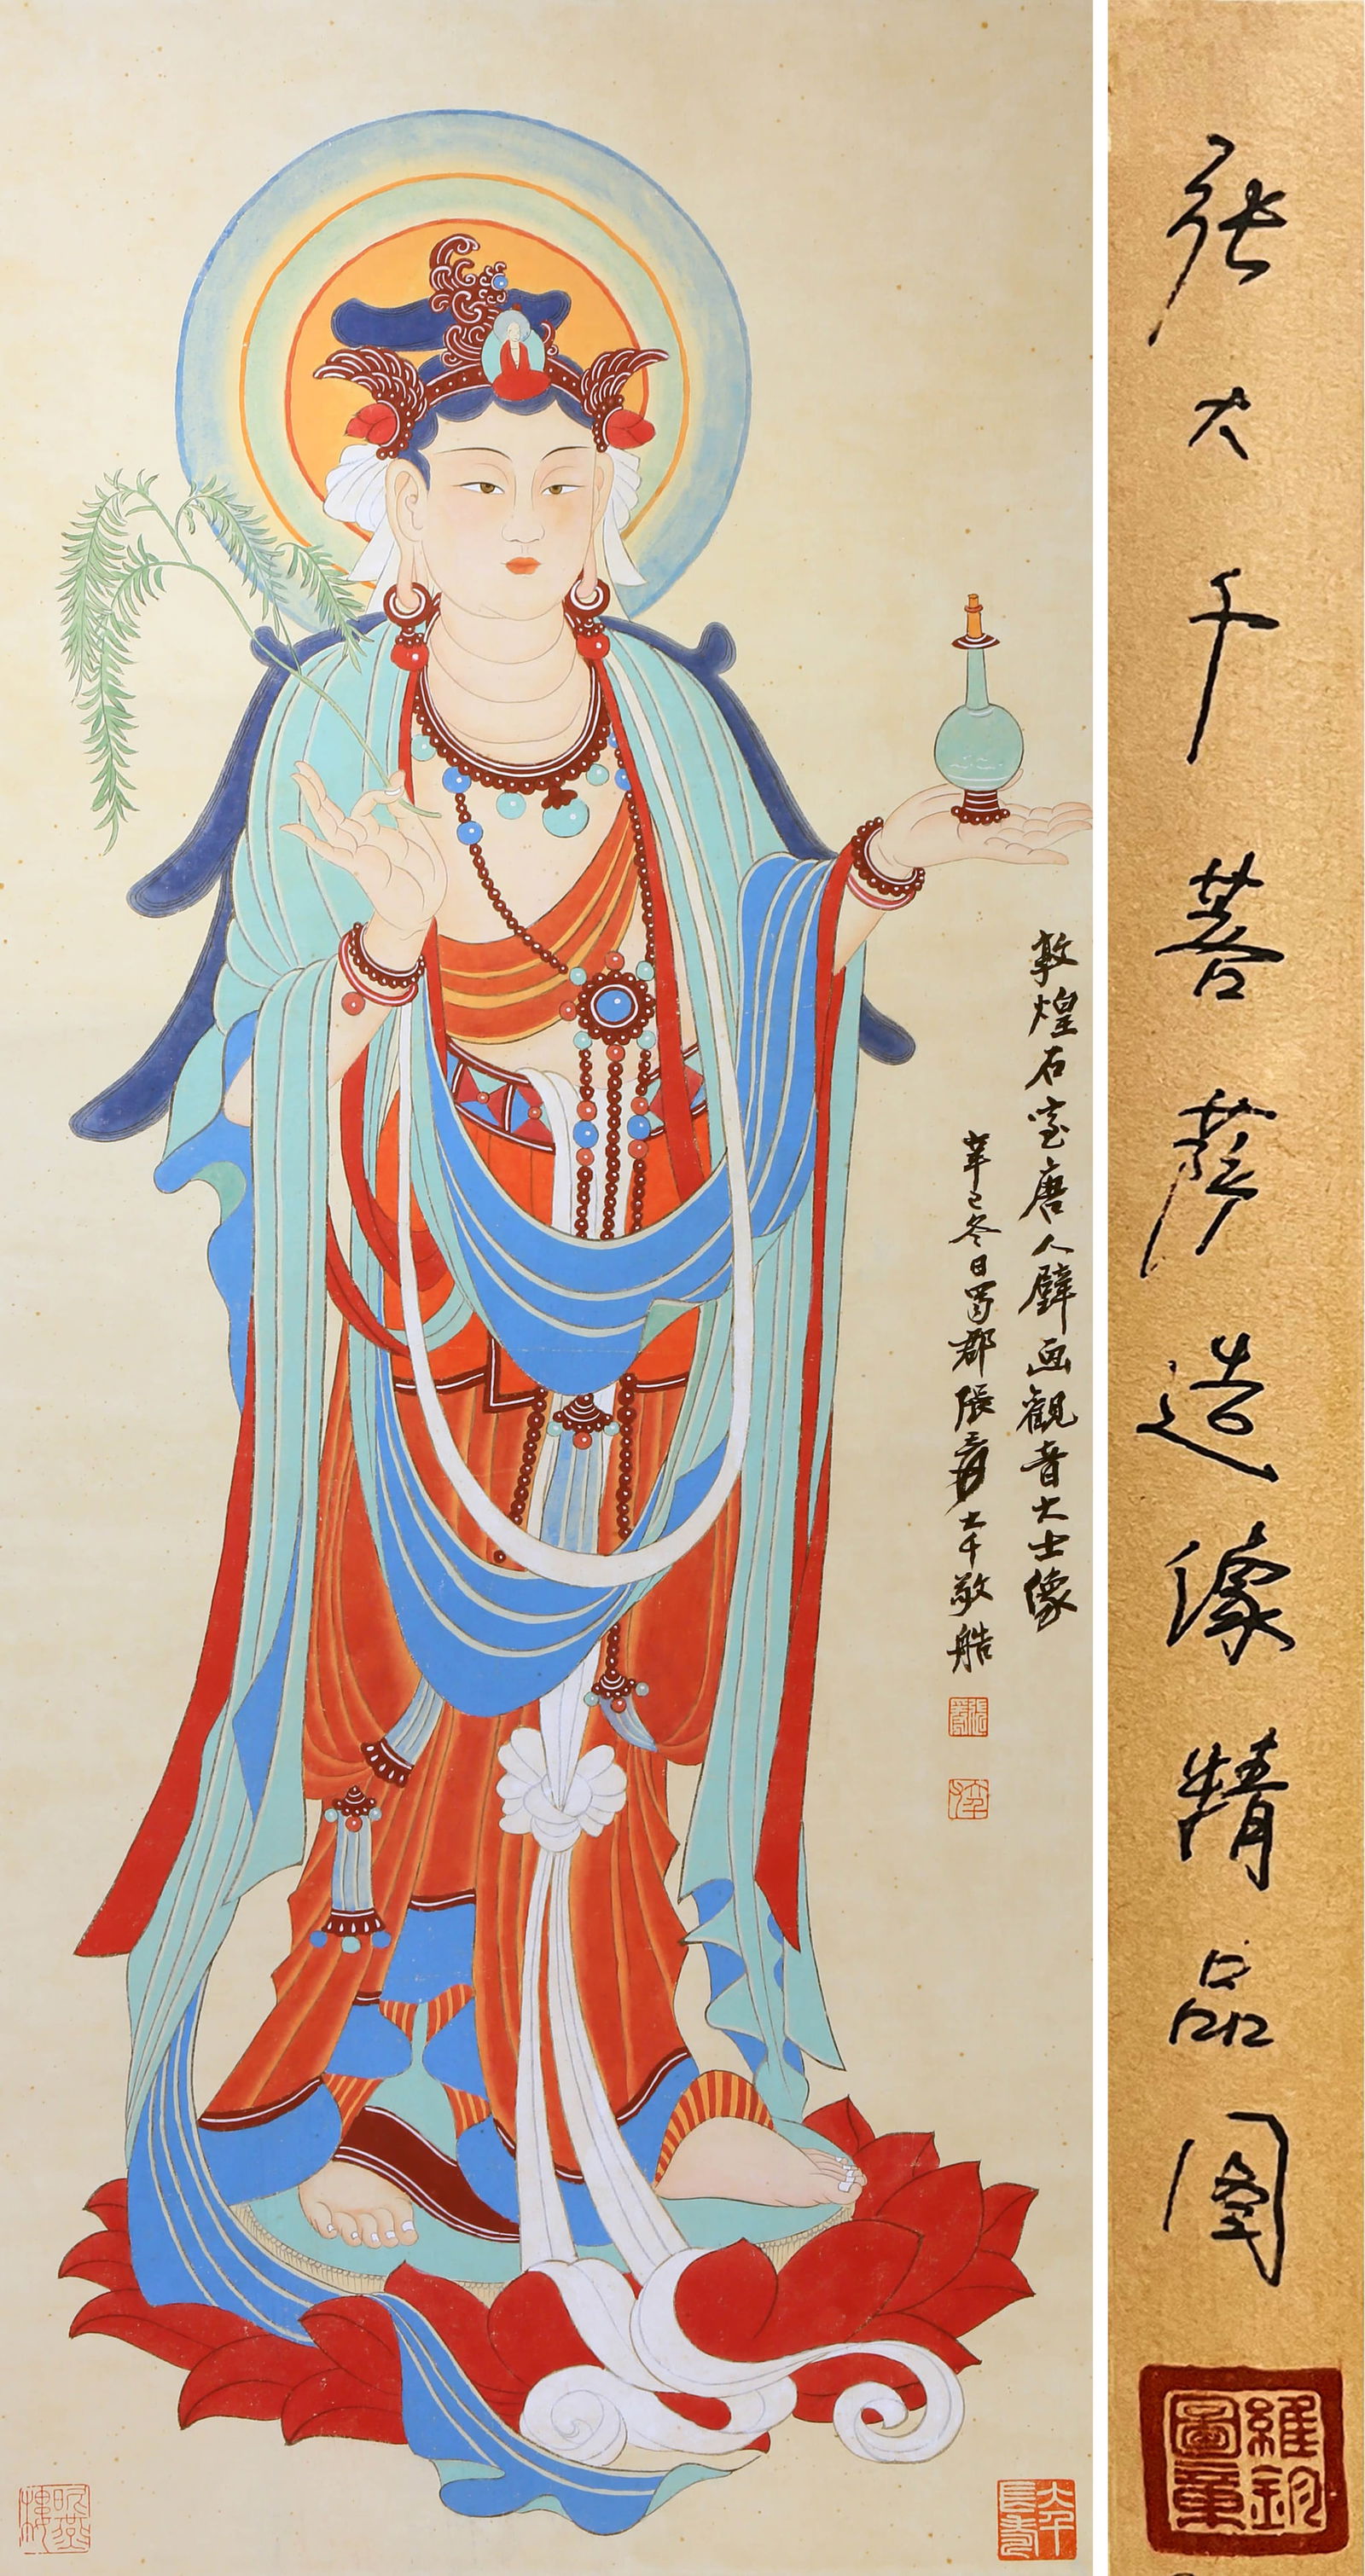 敦煌石室唐人壁画觀音大士像
辛巳冬日蜀郡張爰大千敬橅
張爰
大千
大千長壽
張大千菩薩造像精品图